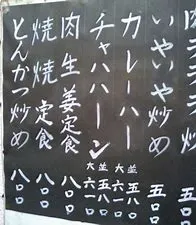 炒め 五〇〇
いやい炒め 五〇〇
カレーハー 並 五八〇
大 六一〇
チャハハーン 並 五八〇
大 六一〇
肉生姜定食 八〇〇
焼焼定食 八〇〇
とんかつ炒め 八〇〇